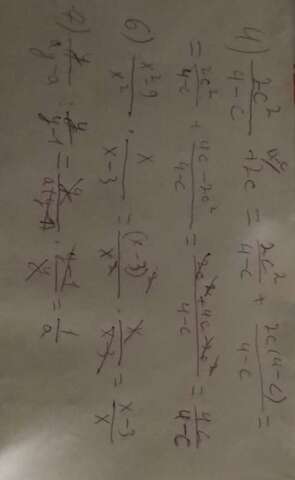 4) 2c²/4-c + 2c = 2c²/4-c + 2c(4-c)/4-c =
= 2c²/4-c + 4c-2c²/4-c = 2c²+4c-2c²/4-c = 4c/4-c
б) x²-9/x² · x/x-3 = (x-3)²/x² · x/x-3 = x-3/x
г) y/ay-a : y/y-1 = y/a(y-1) · y-1/y = 1/a